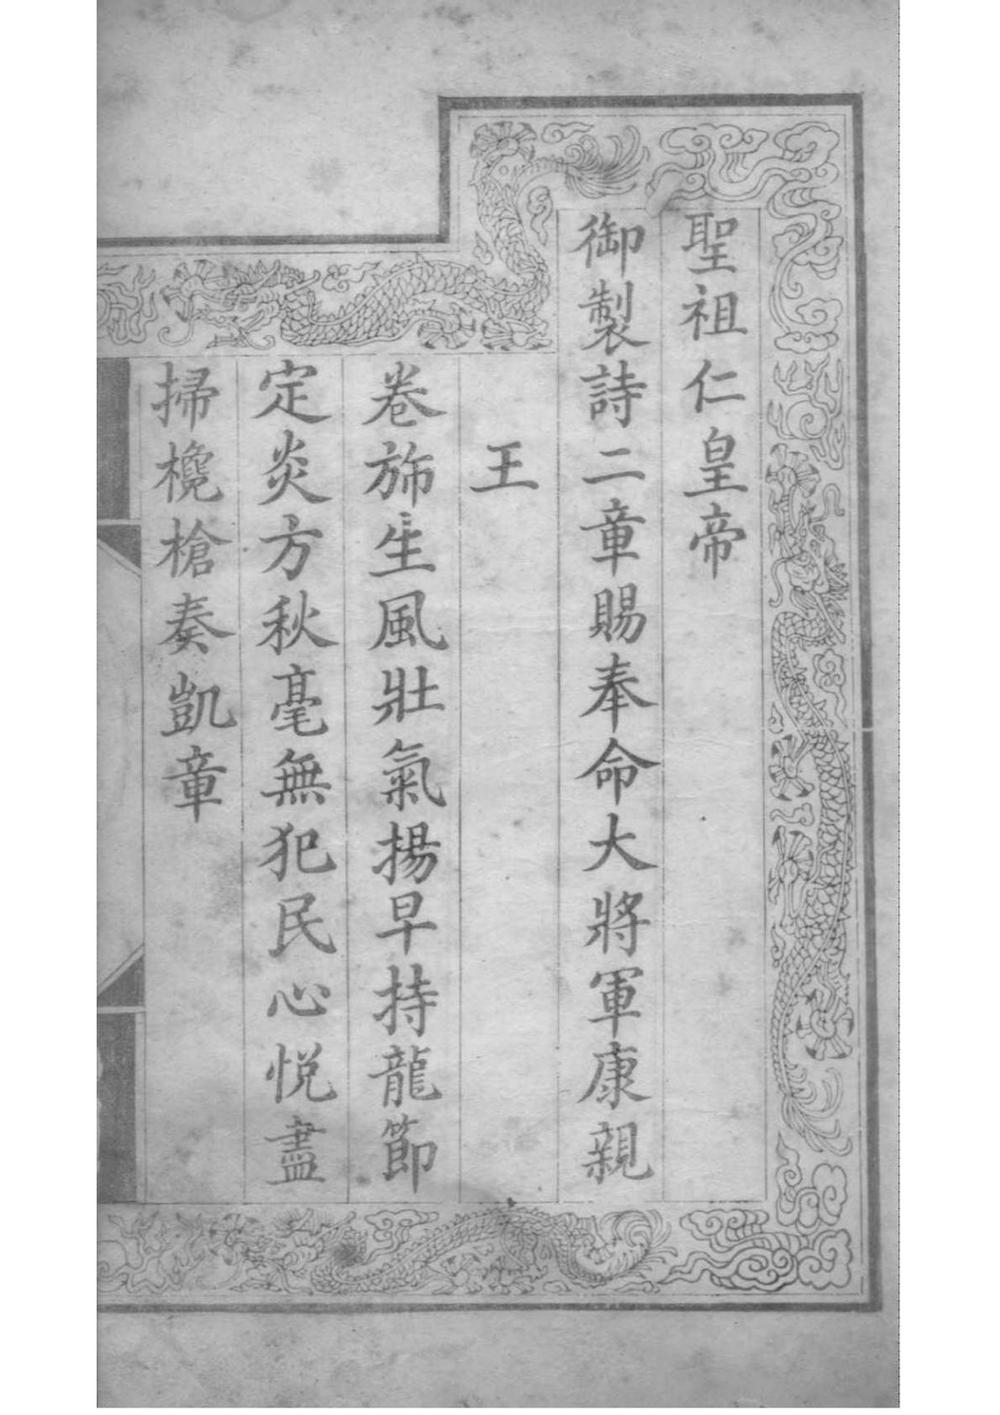 聖祖仁皇帝
御製詩二章賜奉命大將軍康親
王
卷斾生風壯氣揚早持龍節
定炎方秋毫無犯民心悦盡
掃欃槍奏凱章